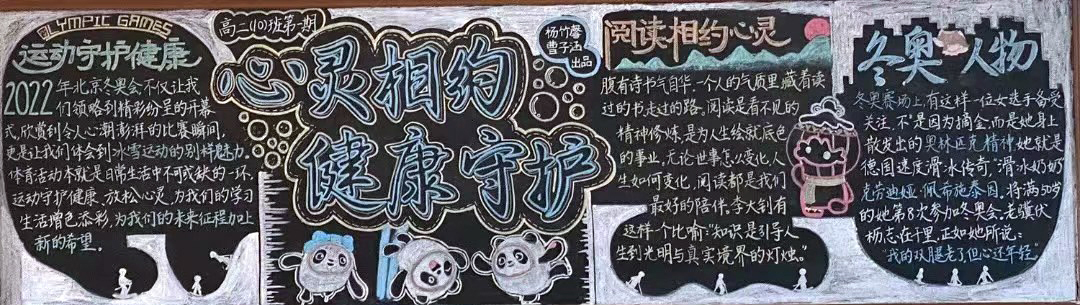 OLYMPIC GAMES
运动守护健康
2022年北京冬奥会不仅让我
们领略到精彩纷呈的开幕
式,欣赏到令人心潮澎湃的比赛瞬间,
更是让我们体会到冰雪运动的别样魅力。
体育活动本就是日常生活中不可或缺的一环,
运动守护健康、放松心灵,为我们的学习
生活增色添彩,为我们的未来征程加上
新的希望。
高二(10)班第一期
心灵相约
健康守护
杨竹馨
曹子涵
出品
阅读相约心灵
腹有诗书气自华,一个人的气质里,藏着读
过的书走过的路。阅读是看不见的
精神修炼,是为人生绘就底色
的事业,无论世事怎么变化,人
生如何变化,阅读都是我们
最好的陪伴。李大钊有
这样一个比喻:“知识是引导人
生到光明与真实境界的灯烛。”
冬奥人物
冬奥赛场上,有这样一位女选手备受
关注,不是因为摘金而是她身上
散发出的奥林匹克精神,她就是
德国速度滑冰传奇“滑冰奶奶”
克劳迪娅·佩希施泰因。将满50岁
的她第8次参加冬奥会。老骥伏
杨志在千里,正如她所说:
“我的双腿老了但心还年轻。”